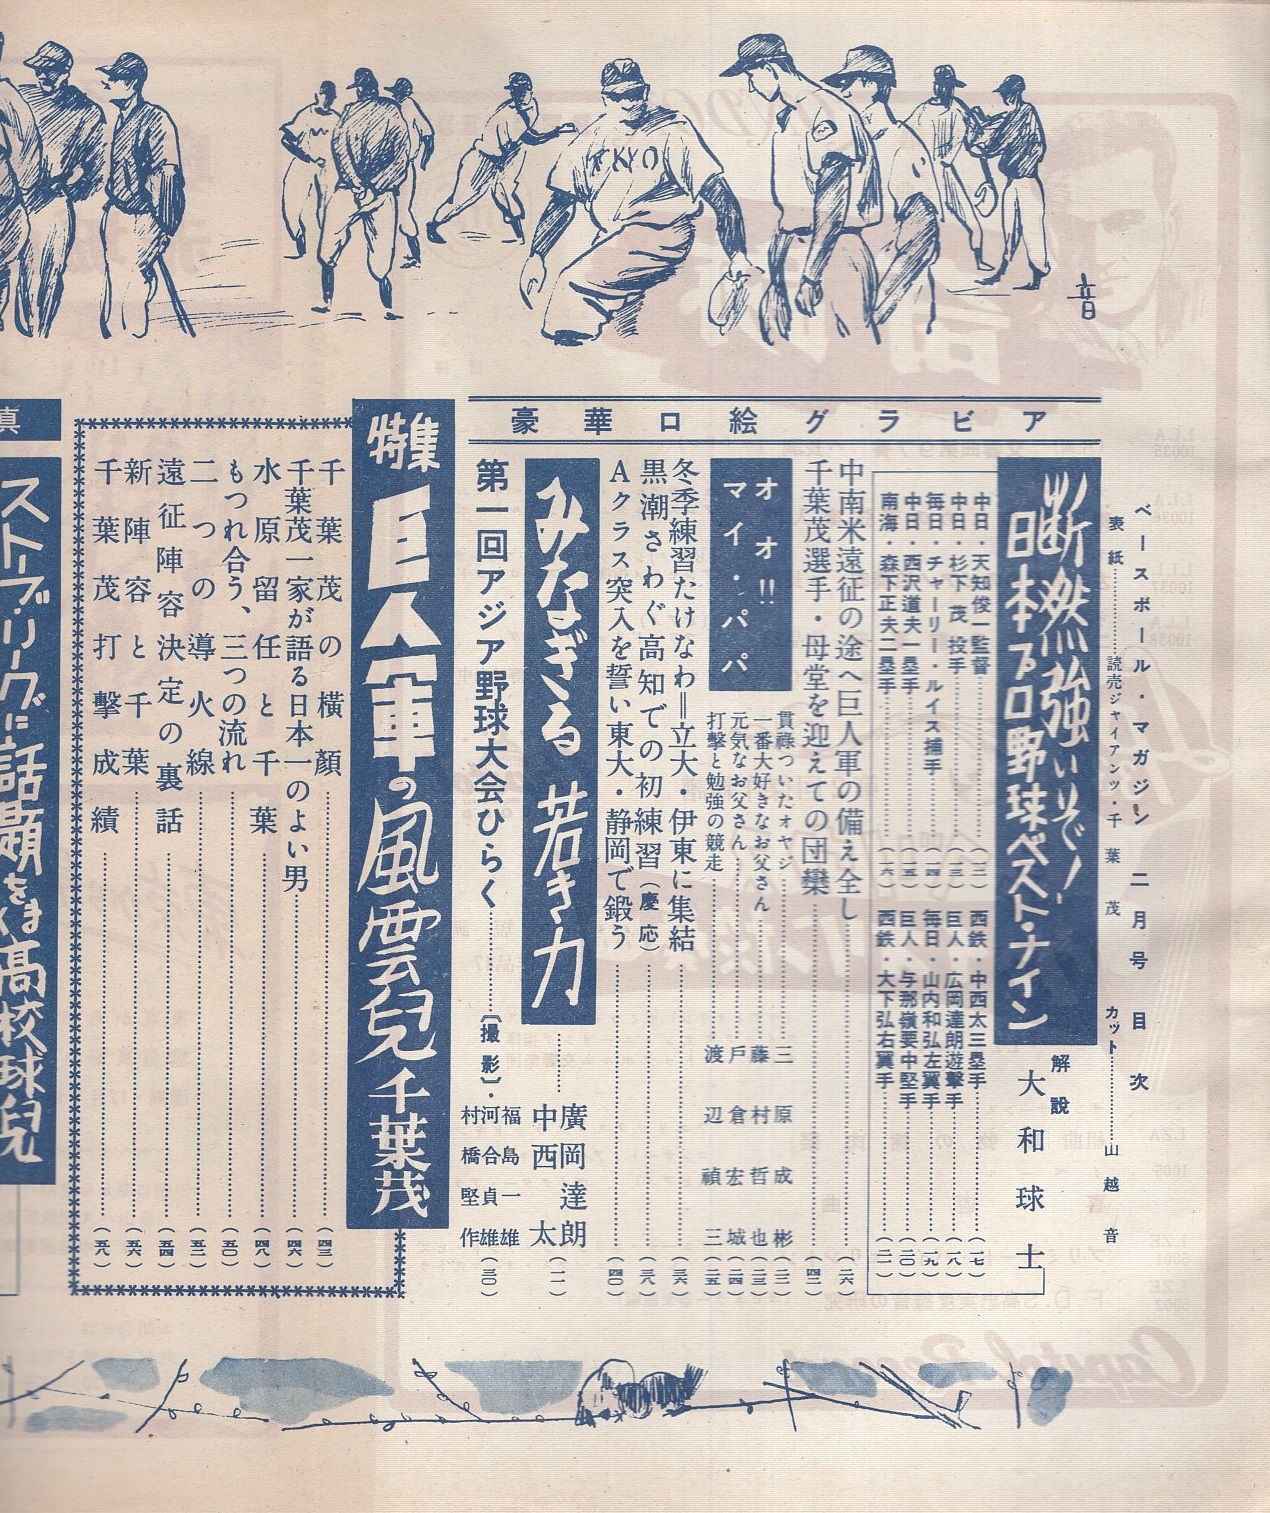 ベースボール・マガジン 二月号 目次
表紙……読売ジャイアンツ・千葉茂
カット……山越音
豪華口絵グラビア
断然強いぞ!
日本プロ野球ベスト・ナイン
解説 大和球士
中日・天知俊一監督……(一二)
中日・杉下茂投手……(一三)
毎日・チャーリー・ルイス捕手……(一四)
中日・西沢道夫一塁手……(一五)
南海・森下正夫二塁手……(一六)
西鉄・中西太三塁手……(一七)
巨人・広岡達朗遊撃手……(一八)
毎日・山内和弘左翼手……(一九)
巨人・与那嶺要中堅手……(二〇)
西鉄・大下弘右翼手……(二一)
中南米遠征の途へ巨人軍の備え全し……(二六)
千葉茂選手・母堂を迎えての団欒……(四二)
オオ!!
マイ・パパ
貫祿ついたオヤジ……三原成彬(二二)
一番大好きなお父さん……藤村哲也(二三)
元気なお父さん……戸倉宏城(二四)
打撃と勉強の競走……渡辺禎三(二五)
冬季練習たけなわ=立大・伊東に集結……(三六)
黒潮さわぐ高知での初練習(慶応)……(三八)
Aクラス突入を誓い東大・静岡で鍛う……(四〇)
みなぎる若き力……廣岡達朗
中西太(一一)
第一回アジア野球大会ひらく……〔撮影〕・福島一雄
河合貞雄
村橋堅作(三〇)
特集 巨人軍の風雲児 千葉茂
千葉茂の横顔……(四三)
千葉茂一家が語る日本一のよい男……(四六)
水原留任と千葉……(四八)
もつれ合う、三つの流れ……(五〇)
二つの導火線……(五二)
遠征陣容決定の裏話……(五四)
新陣容と千葉……(五六)
千葉茂打撃成績……(五八)
真
ストーブ・リーグに話題をまく高校球児
TKYO
音